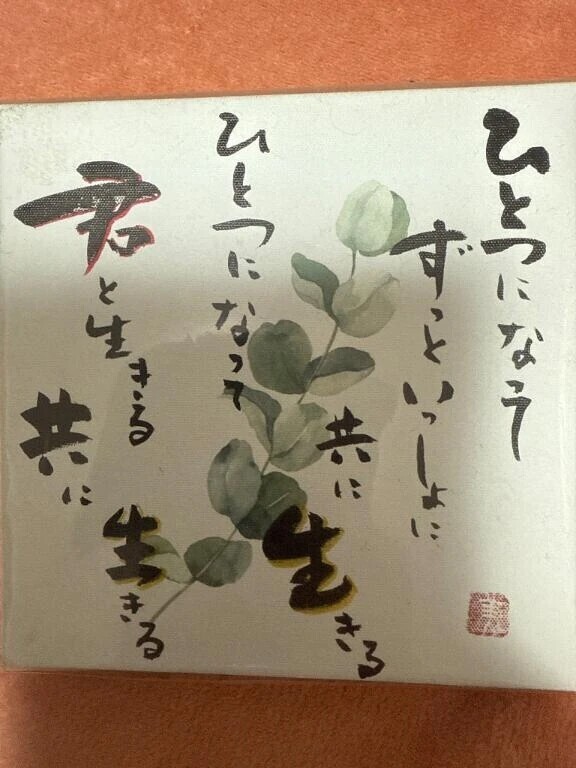 ひとつになって
ずっといっしょに
共に
生きる
ひとつになって
君と生きる
共に
生きる